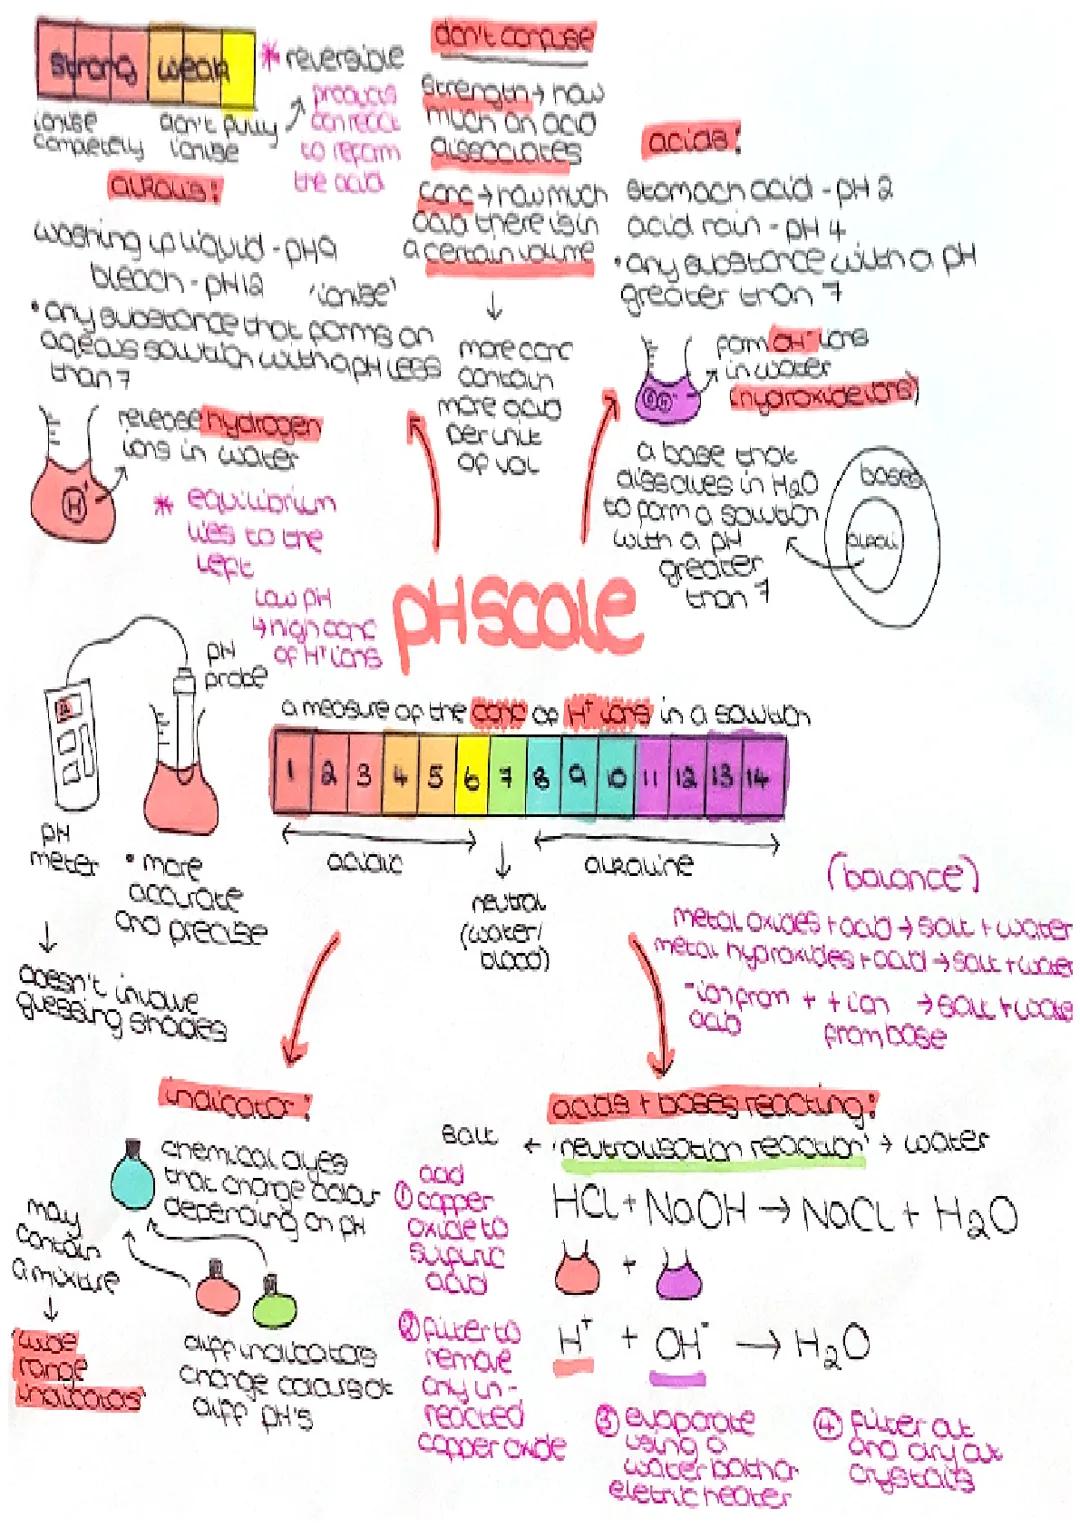 strong weak
ionise
completely
don't fully
ionise
* reversible
products
can react
to reform
the acid
don't confuse
strength → how
much an acid
dissociates
conc → how much
acid there is in
a certain volume
more conc
contain
more acid
per unit
of vol
alkalis!
washing up liquid - pH9
bleach - pH12
'ionise'
• any substance that forms an
aqeous solution with a pH less
than 7
release hydrogen
ions in water
H+
* equilibrium
lies to the
left
low pH
↳ high conc
of H+ ions
acids!
stomach acid - pH 2
acid rain - pH 4
• any substance with a pH
greater than 7
form OH- ions
in water
(hydroxide ions)
OH-
a base that
dissolves in H2O
to form a solution
with a pH
greater
than 7
bases
alkali
pH scale
a measure of the conc of H+ ions in a solution
1 2 3 4 5 6 7 8 9 10 11 12 13 14
acidic
neutral
(water/
blood)
alkaline
pH
probe
pH
meter
• more
accurate
and precise
doesn't involve
guessing shades
(balance)
metal oxides + acid → salt + water
metal hydroxides + acid → salt + water
- ion from + + ion → salt + wate
acid
from base
indicator!
chemical dyes
that change colour
depending on pH
may
contain
a mixture
wide
range
indicators
diff indicators
change colours at
diff pH's
acids + bases reacting!
salt ← 'neutralisation reaction' → water
HCl + NaOH → NaCl + H2O
+
H+ + OH- → H2O
add
① copper
oxide to
sulfuric
acid
② filter to
remove
any un-
reacted
copper oxide
③ evaporate
using a
water bath or
eletric heater
④ filter out
and dry out
crystals